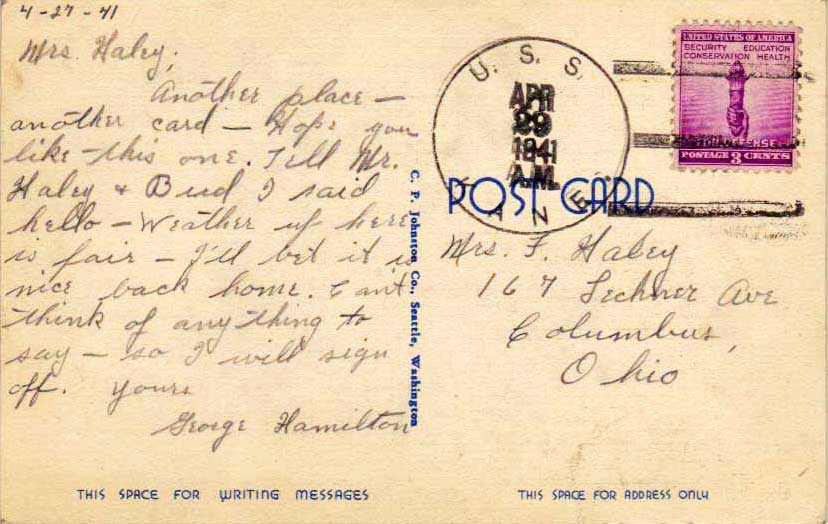 4-27-41
Mrs. Haley,
Another place -
another card - Hope you
like this one. Tell Mr.
Haley & Bud I said
hello - Weather up here
is fair - I'll bet it is
nice back home. Can't
think of anything to
say - so I will sign
off. Yours
George Hamilton
THIS SPACE FOR WRITING MESSAGES
C. P. Johnston Co., Seattle, Washington
U. S. S.
APR
29
1941
A.M.
KANE
UNITED STATES OF AMERICA
SECURITY EDUCATION
CONSERVATION HEALTH
FOR DEFENSE
POSTAGE 3 CENTS
POST CARD
Mrs. F. Haley
167 Lechner Ave
Columbus,
Ohio
THIS SPACE FOR ADDRESS ONLY